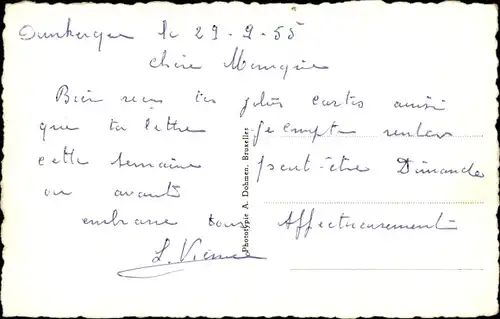 Dunkerque le 29-9-55
chère
Bien reçu tes jolies cartes ainsi
que ta lettre je compte rentrer
cette semaine peut-être Dimanche
ou avant
embrasse tous Affectueusement
L.
Phototypie A. Dohmen, Bruxelles